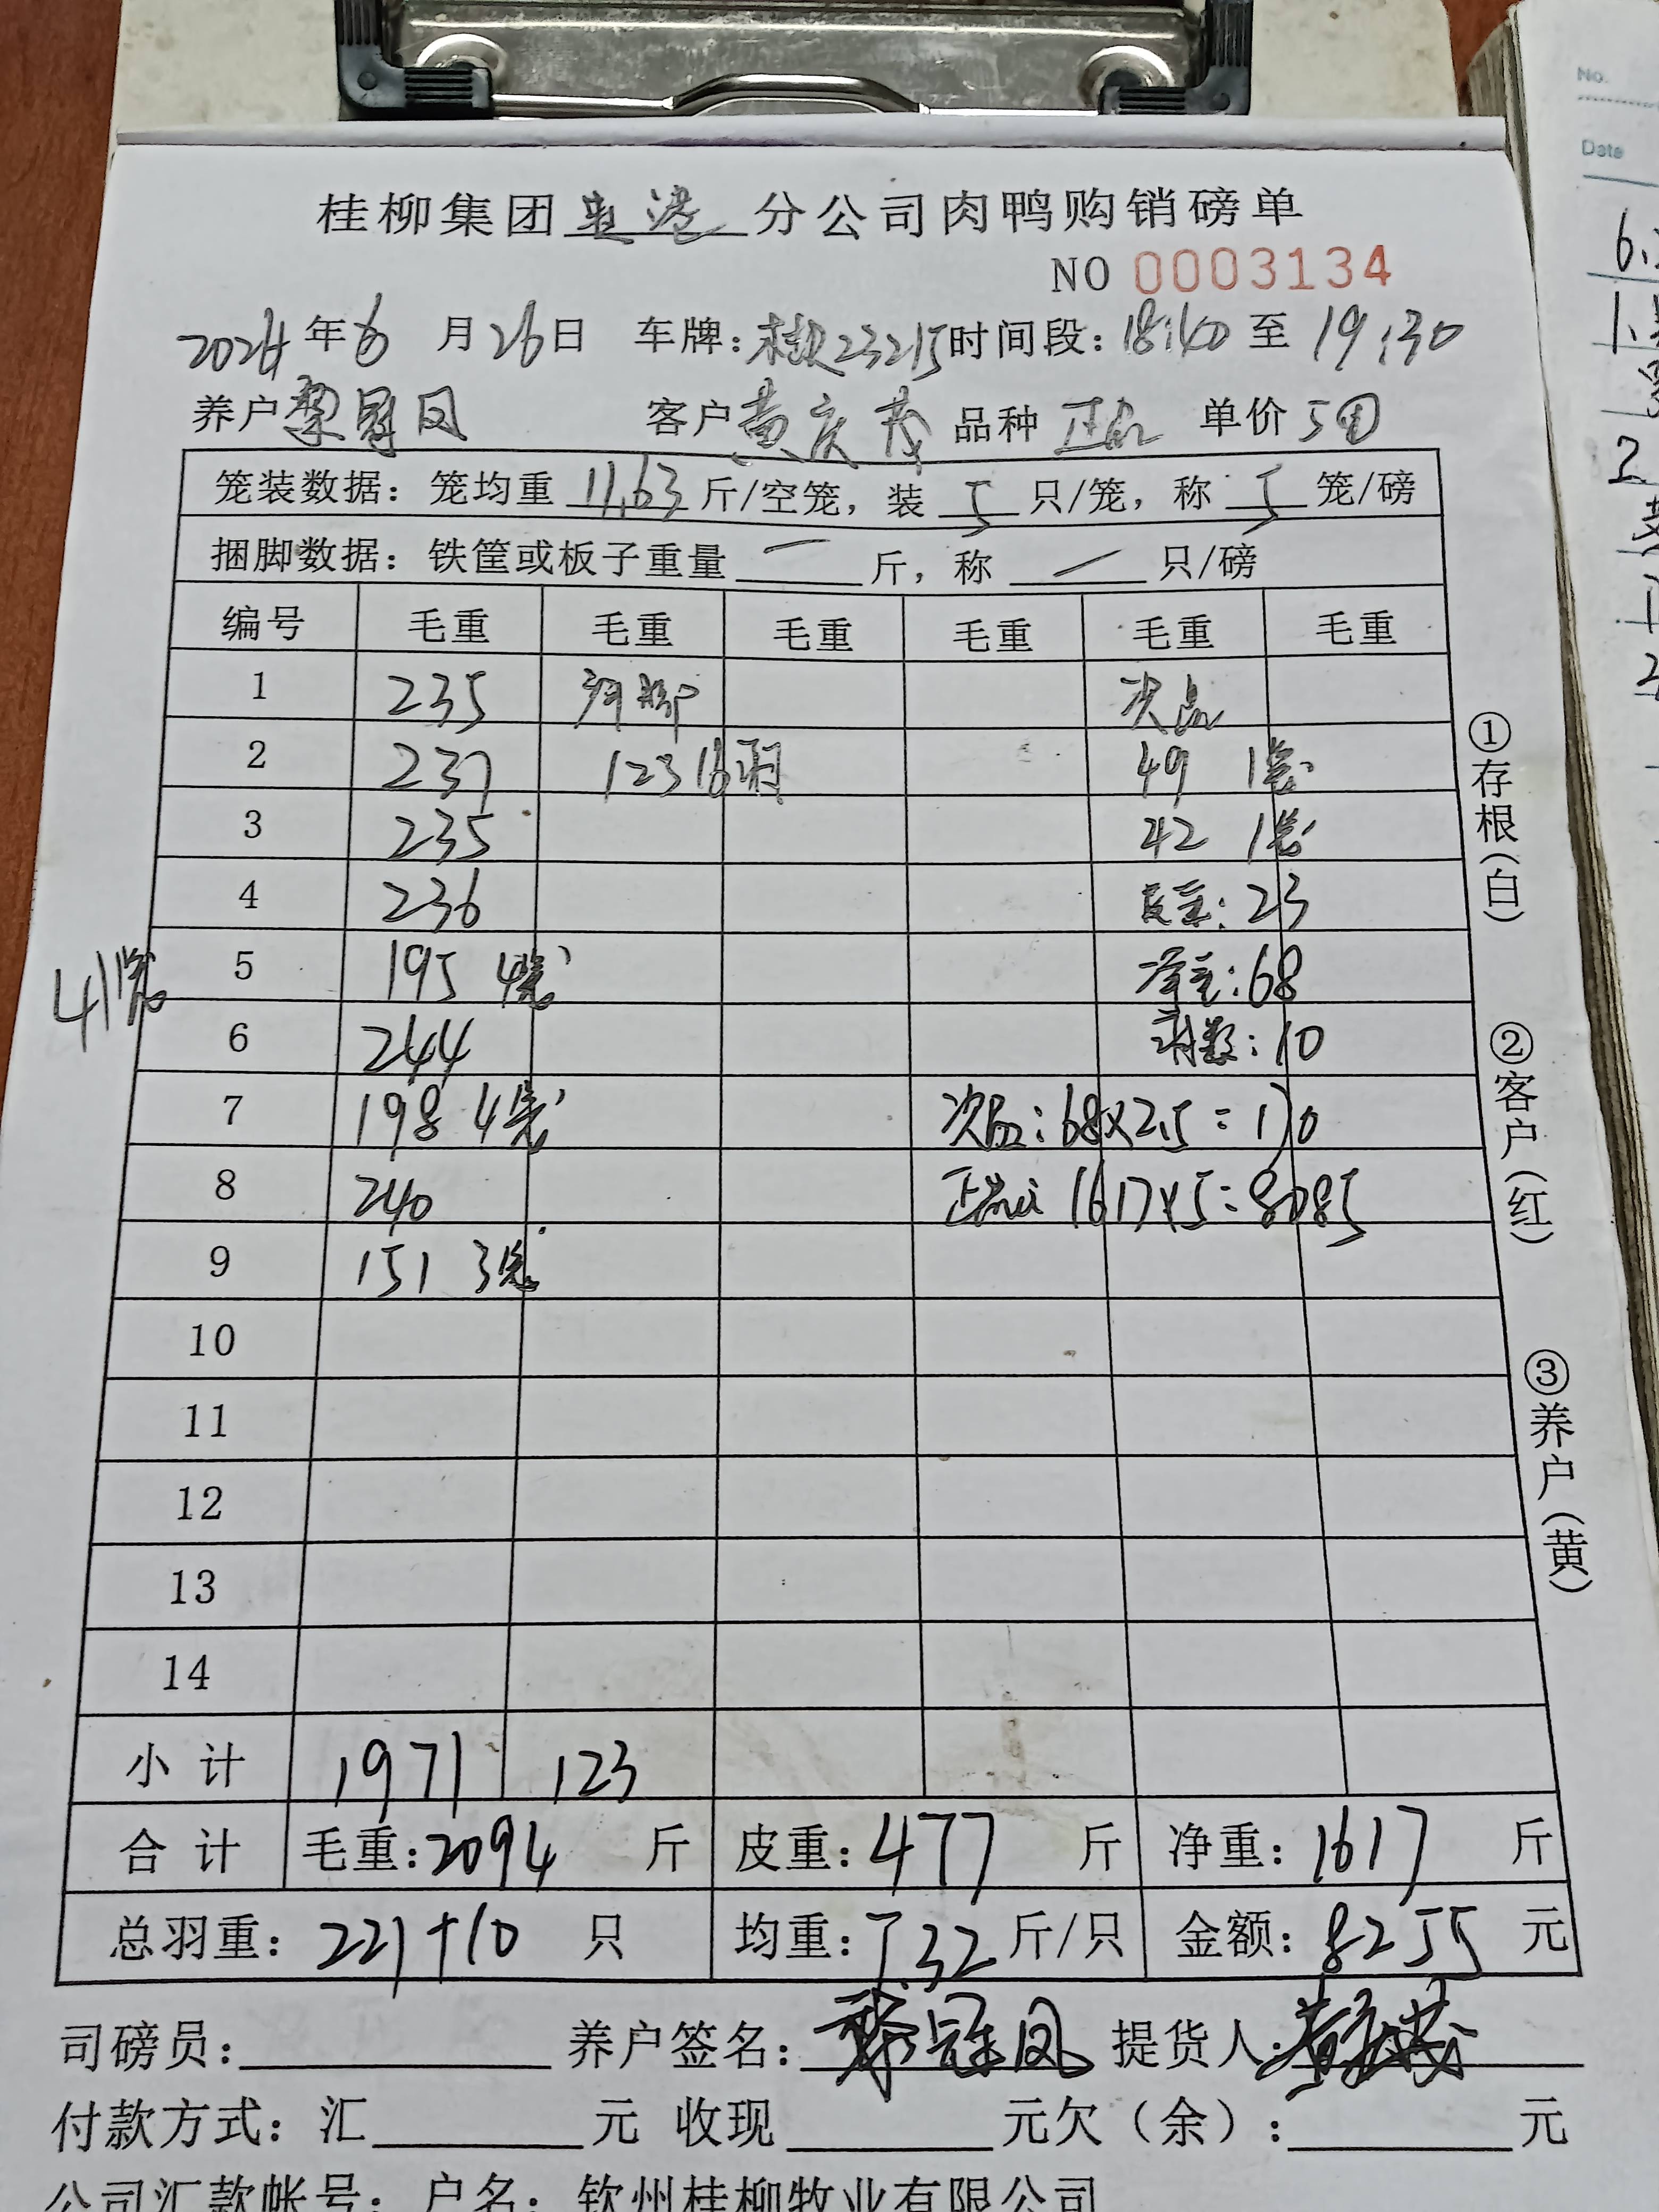 No.
Date
桂柳集团贵港分公司肉鸭购销磅单
NO 0003134
2024年6月26日 车牌:桂 23215 时间段:18:40至19:30
养户 梁冠凤 客户 黄庆茂 品种 正品 单价 5元
笼装数据:笼均重 11.63 斤/空笼,装 5 只/笼,称 5 笼/磅
捆脚数据:铁筐或板子重量 一 斤,称 一 只/磅
编号 毛重 毛重 毛重 毛重 毛重 毛重
1 235 捆脚 次品
2 237 123 16羽 49 1笼
3 235 42 1笼
4 236 皮重:23
5 195 4笼 净重:68
41笼
6 244 羽数:10
7 198 4笼 次品:68×2.5=170
8 240 正品 1617×5=8085
9 151 3笼
10
11
12
13
14
小计 1971 123
合计 毛重:2094 斤 皮重:477 斤 净重:1617 斤
总羽重:221+10 只 均重:7.32 斤/只 金额:8255 元
司磅员: 养户签名:梁冠凤 提货人:黄庆茂
付款方式:汇 元 收现 元欠(余): 元
公司汇款帐号:户名:钦州桂柳牧业有限公司
①存根(白)
②客户(红)
③养户(黄)